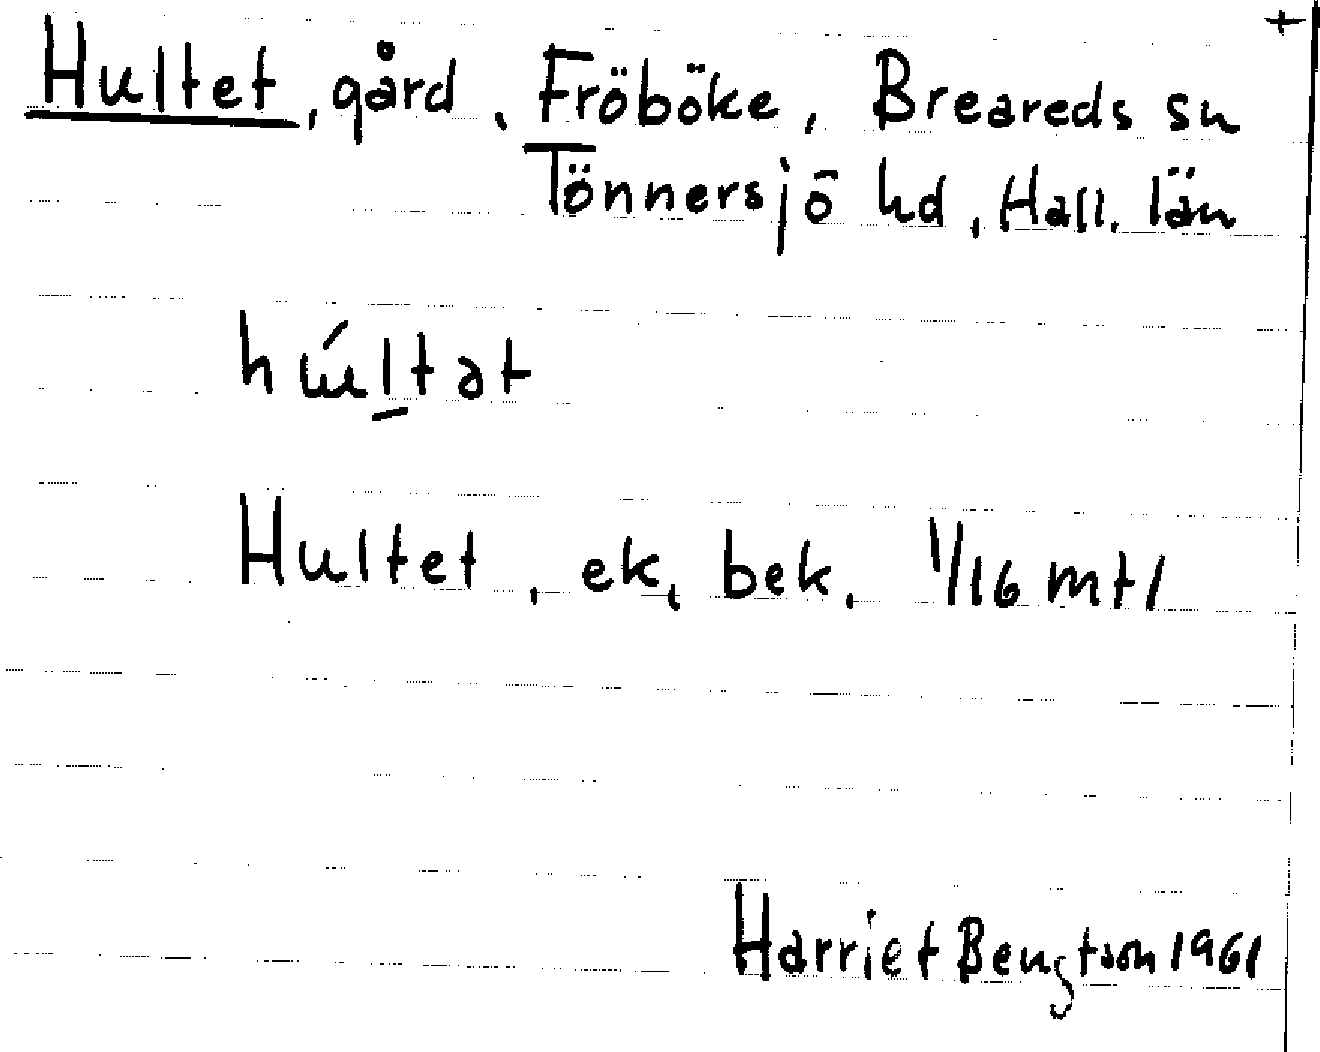 +
Hultet, gård, Fröböke, Breareds sn
Tönnersjö hd, Hall. län
Hultet, ek, bek. 1/16 mtl
Harriet Bengtson 1961